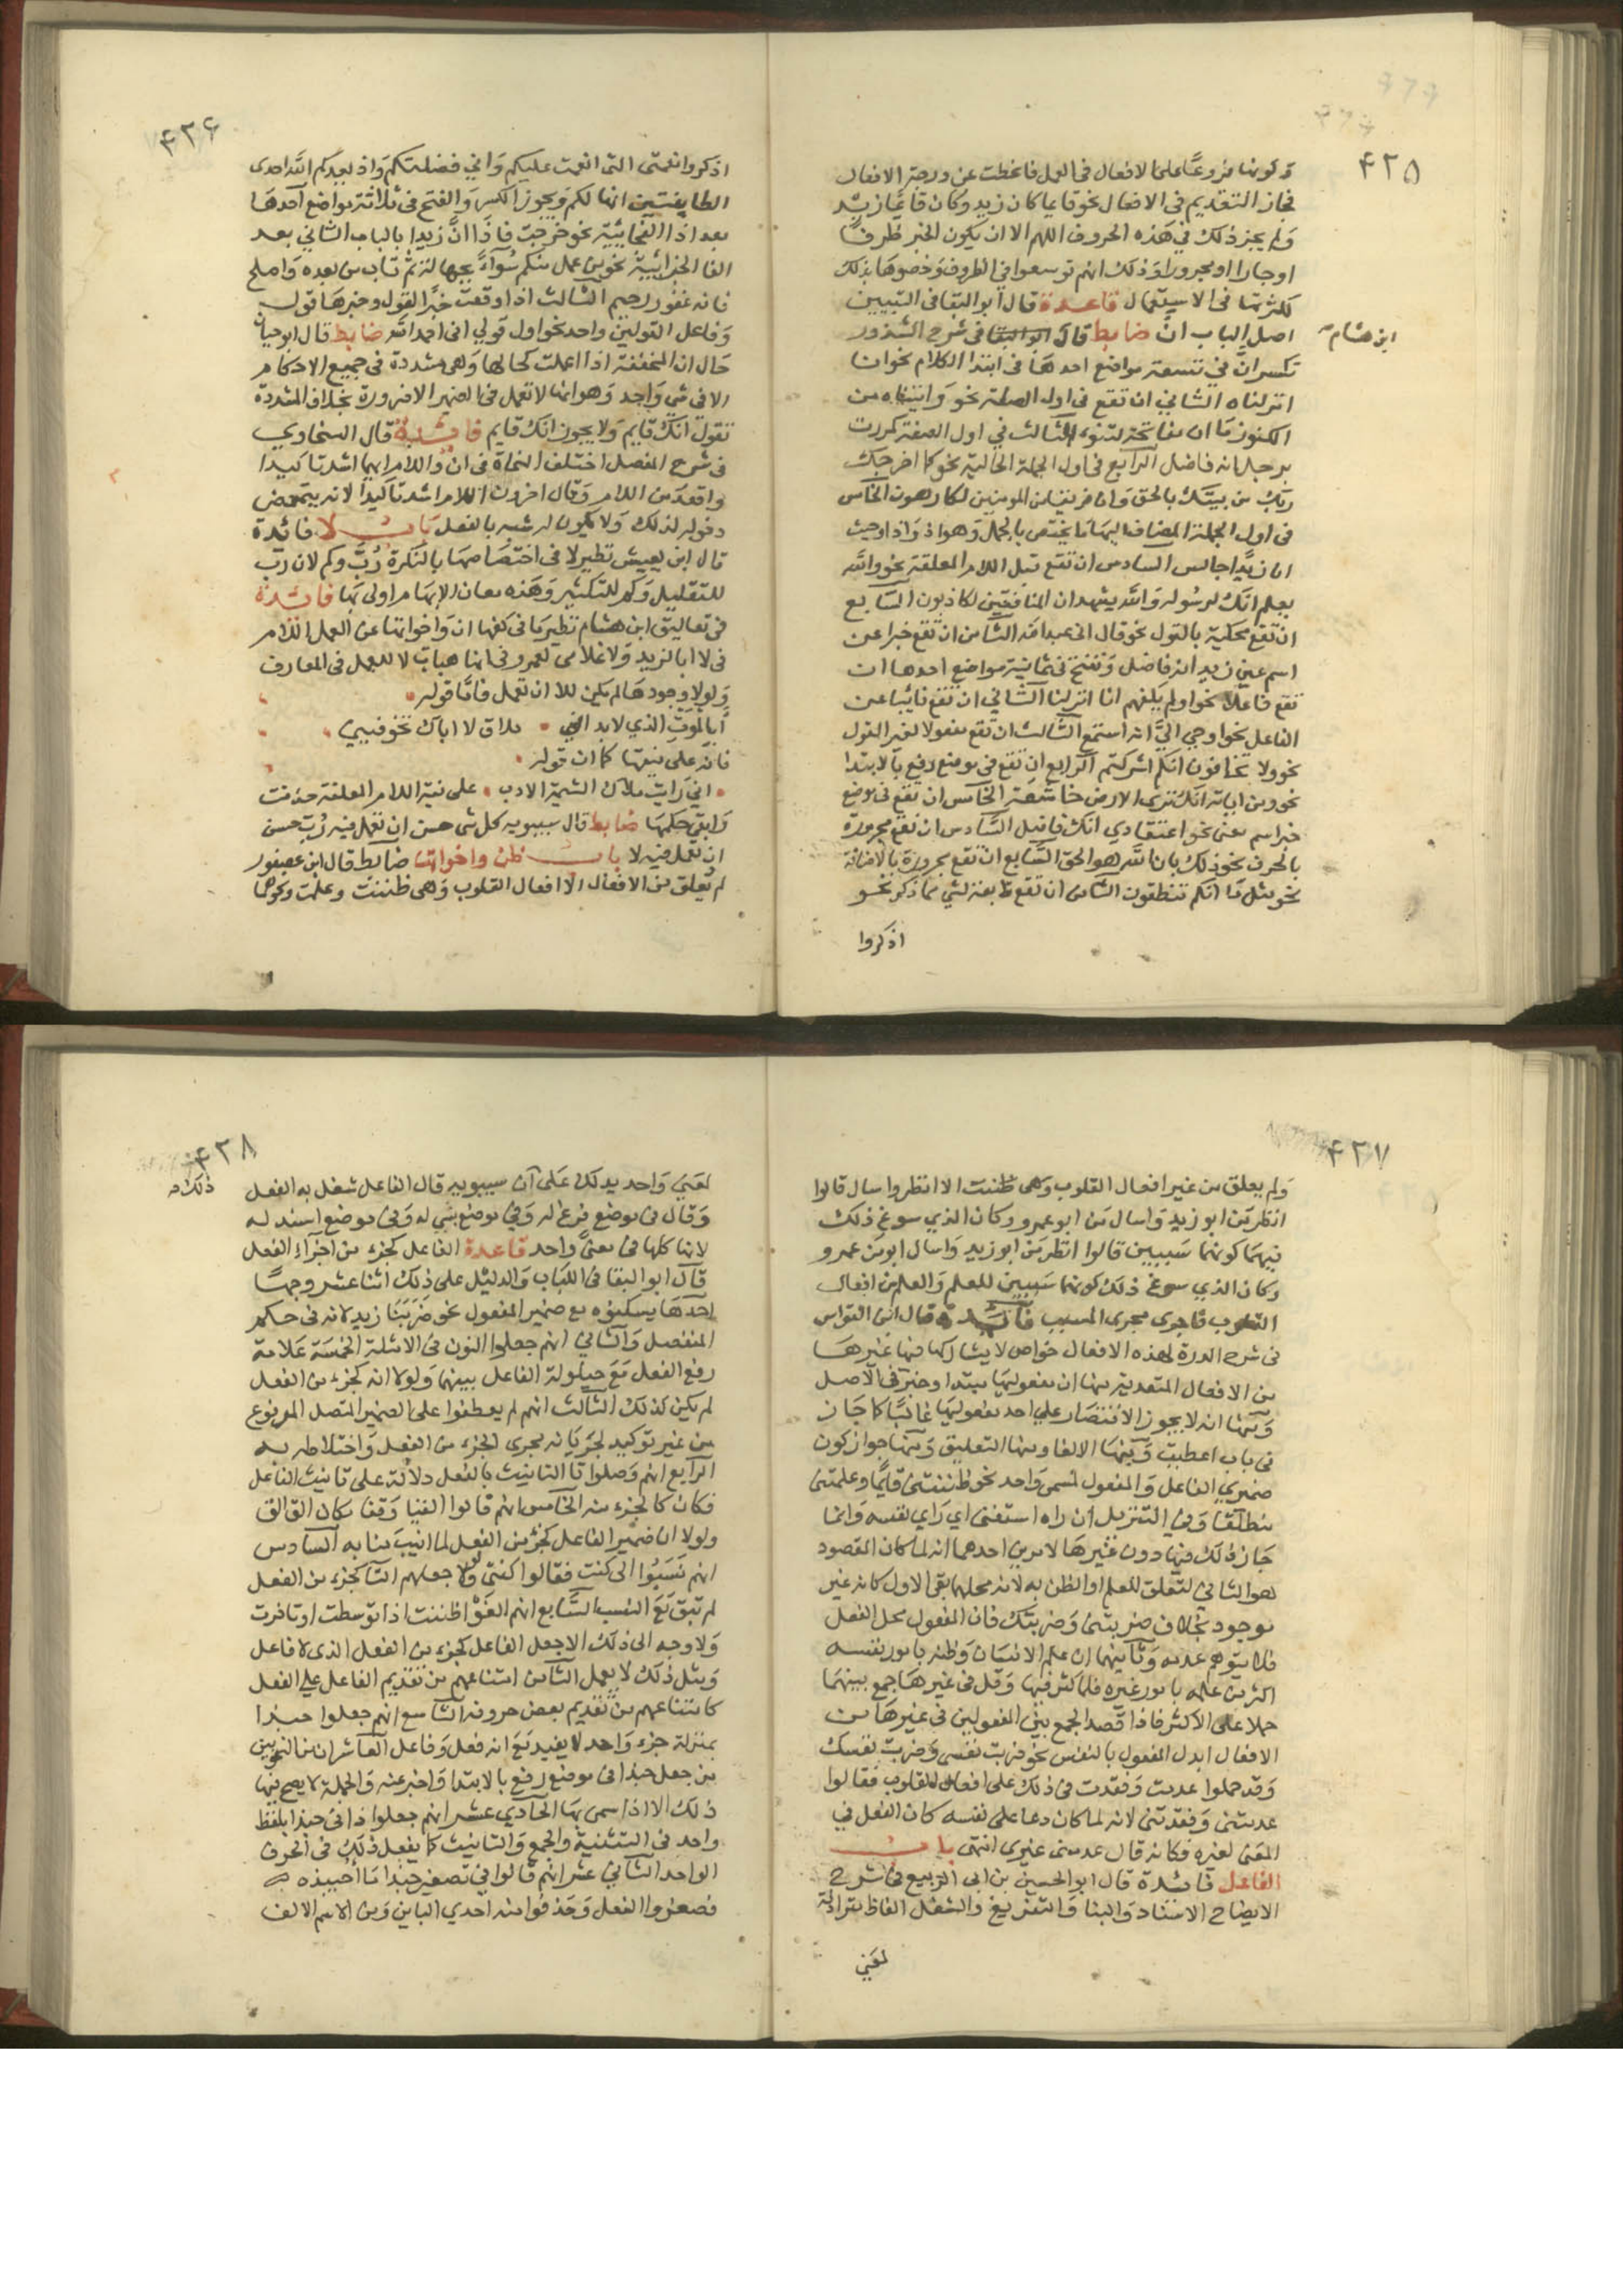 ٤٢٥
ولكونها فروعًا على الافعال في العمل فانحطت عن درجة الافعال
فجاز التقديم في الافعال نحو قايما كان زيد وكان قايمًا زيد
ولم يجز ذلك في هذه الحروف اللهم الا ان يكون الخبر ظرفًا
او جارا او مجرورا وذلك انهم توسعوا في الظروف وخصوها بذلك
لكثرتها في الاستعمال قاعدة قال ابو البقا في التبيين
اصل الباب انّ ضابط قال ابو البقا في شرح الشذور
ابن هشام
تكسر انّ في تسعة مواضع احدها في ابتدا الكلام نحو انا
انزلناه الثاني ان تقع في اول الصلة نحو واتيناه من
الكنوز ما ان مفاتحه لتنوء الثالث في اول الصفة كمررت
برجل انه فاضل الرابع في اول الجملة الحالية نحو كما اخرجك
ربك من بيتك بالحق وان فريقا من المومنين لكارهون الخامس
في اول الجملة المضاف اليها ما يختص بالجمل وهو اذ واذا وحيث
ان زيدًا جالس السادس ان تقع قبل اللام المعلقة نحو والله
يعلم انك لرسوله والله يشهد ان المنافقين لكاذبون السابع
ان تقع محكية بالقول نحو قال اني عبد الله الثامن ان تقع خبرا عن
اسم عين زيد انه فاضل وتفتح في ثمانية مواضع احدها ان
تقع فاعلا نحو اولم يكفهم انا انزلنا الثاني ان تقع نايبا عن
الفاعل نحو اوحي اليّ انه استمع الثالث ان تقع مفعولا لغير القول
نحو ولا تخافون انكم اشركتم الرابع ان تقع في موضع رفع بالابتدا
نحو ومن اياته انك ترى الارض خاشعة الخامس ان تقع في موضع
خبر اسم معنى نحو اعتقادي انك فاضل السادس ان تقع مجرورة
بالحرف نحو ذلك بان الله هو الحق السابع ان تقع مجرورة بالاضافة
نحو مثل ما انكم تنطقون الثامن ان تقع تابعة لشي مما ذكر نحو
اذكروا
٤٢٦
اذكروا نعمتي التي انعمت عليكم واني فضلتكم واذ يعدكم الله احدى
الطايفتين انها لكم ويجوز الكسر والفتح في ثلاثة مواضع احدها
بعد اذا الفجائية نحو خرجت فاذا انّ زيدا بالباب الثاني بعد
الفا الجزائية نحو من عمل منكم سُوءًا بجهالة ثم تاب من بعده واصلح
فانه غفور رحيم الثالث اذا وقعت خبرًا لقول وخبرها قول
وفاعل القولين واحد نحو اول قولي اني احمد الله ضابط قال ابو حيان
حال ان المخففة اذا اعملت كحالها وهي مشددة في جميع الاحكام
الا في شي واحد وهو انها لا تعمل في الضمير الا ضرورة بخلاف المشددة
تقول انّك قايم ولا يجوز انك قايم فائدة قال السخاوي
في شرح المفصل اختلف النحاة في انّ واللام ايهما اشد تاكيدا
واقعد من اللام وقال اخرون اللام اشد تاكيدا لانه يتمحض
دخوله لذلك ولا يكون له شبه بالفعل باب لا فائدة
قال ابن يعيش نظير لا في اختصاصها بالنكرة رُبّ وكم لان رب
للتقليل وكم للتكثير وهذه معان الابهام اولى بها فائدة
في تعاليق ابن هشام نظير ما في كفها ان واخواتها عن العمل اللام
في لا ابا لزيد ولا غلامي لعمرو في انها هيات لا للعمل في المعارف
ولولا وجودها لم يكن للا ان تعمل فاما قوله
أبالموت الذي لا بد اني ملاق لا اباك تخوفيني
فانه على نيتها كما ان قوله
اني رايت ملاك الشيمة الادب على نية اللام المعلقة حذفت
وابقي حكمها ضابط قال سيبويه كل شي حسن ان تعمل فيه رُبّ حسن
ان تعمل فيه لا باب ظن واخواتها ضابط قال ابن عصفور
لم يُعلق من الافعال الا افعال القلوب وهي ظننت وعلمت ونحوهما
٤٢٧
ولم يعلق من غير افعال القلوب وهي ظننت الا انظر واسال قالوا
انظر من ابو زيد واسال من ابو عمرو وكان الذي سوغ ذلك
فيهما كونهما سببين قالوا انظر من ابو زيد واسال ابو من عمرو
وكان الذي سوغ ذلك كونهما سببين للعلم والعلم من افعال
القلوب فاجرى مجرى المسبب فائدة قال ابن القواس
في شرح الدرة لهذه الافعال خواص لا يشاركها فيها غيرها
من الافعال المتعدية منها ان مفعوليها مبتدا وخبر في الاصل
ومنها انه لا يجوز الاقتصار علي احد مفعوليها غالبًا كما جاز
في باب اعطيت ومنها الالغا ومنها التعليق ومنها جواز كون
ضميري الفاعل والمفعول لمسمى واحد نحو ظننتني قايمًا وعلمتني
منطلقا وفي التنزيل ان راه استغنى اي راي نفسه وانما
جاز ذلك فيها دون غيرها لامرين احدهما انه لما كان المقصود
هو الثاني لتعلق العلم او الظن به لانه محلهما بقي الاول كانه غير
موجود بخلاف ضربتني وضربتك فان المفعول محل الفعل
فلا يتوهم عدمه وثانيهما ان علم الانسان وظنه بامور نفسه
اكثر من علمه بامور غيره فلما كثر فيها وقل في غيرها جمع بينهما
حملا على الاكثر فاذا قصد الجمع بين المفعولين في غيرها من
الافعال ابدل المفعول بالنفس نحو ضربت نفسي وضربت نفسك
وقد حملوا عدمت وفقدت في ذلك على افعال القلوب فقالوا
عدمتني وفقدتني لانه لما كان دعا على نفسه كان الفعل في
المعنى لغيره فكانه قال عدمني غيري انتهى باب
الفاعل فائدة قال ابو الحسين بن ابي الربيع في شرح
الايضاح الاسناد والبنا والتفريغ والشغل الفاظ مترادفة
لمعني
٤٢٨
لمعني واحد يدلك على ان سيبويه قال الفاعل شغل به الفعل
ذلك
وقال في موضع فرغ له وفي موضع بني له وفي موضع اسند له
لانها كلها في معنى واحد قاعدة الفاعل كجزء من اجزاء الفعل
قال ابو البقا في اللباب والدليل على ذلك اثنا عشر وجهًا
احدها يسكنوه مع ضمير المفعول نحو ضربنا زيد لانه في حكم
المنفصل والثاني انهم جعلوا النون في الامثلة الخمسة علامة
رفع الفعل مع حيلولة الفاعل بينهما ولولا انه كجزء من الفعل
لم يكن كذلك الثالث انهم لم يعطفوا على الضمير المتصل المرفوع
من غير توكيد لجريانه مجرى الجزء من الفعل واختلاطه به
الرابع انهم وصلوا تا التانيث بالفعل دلالة على تانيث الفاعل
فكان كالجزء منه الخامس انهم قالوا القيا وقفا مكان الق الق
ولولا ان ضمير الفاعل كجزء من الفعل لما انيب منابه السادس
انهم نَسَبُوا الى كنت فقالوا كنتي ولولا جعلهم التا كجزء من الفعل
لم تبق مع النسب السابع انهم الغوا ظننت اذا توسطت او تاخرت
ولا وجه الى ذلك الا جعل الفاعل كجزء من الفعل الذى لا فاعل
ومثل ذلك لا يعمل الثامن امتناعهم من تقديم الفاعل علي الفعل
كامتناعهم من تقديم بعض حروفه التاسع انهم جعلوا حبذا
بمنزلة جزء واحد لا يفيد مع انه فعل وفاعل العاشر ان من النحويين
من جعل حبذا في موضع رفع بالابتدا واخبر عنه والجملة لا يصح فيها
ذلك الا اذا سمي بها الحادي عشر انهم جعلوا ذا في حبذا بلفظ
واحد في التثنية والجمع والتانيث كما يفعل ذلك في الحرف
الواحد الثاني عشر انهم قالوا في تصغير حبذا ما احيبذه
فصغروا الفعل وحذفوا منه احدي البائين ومن الاسم الالف